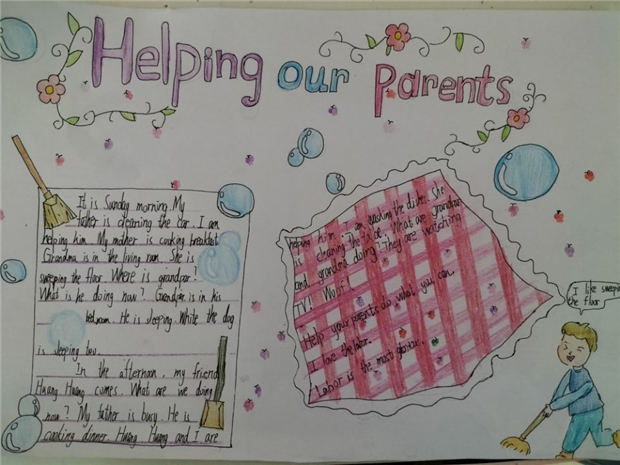 Helping our Parents
It is Sunday morning. My
father is cleaning the car. I am
helping him. My mother is cooking breakfast.
Grandma is in the living room. She is
sweeping the floor. Where is grandpa?
What is he doing now? Grandpa is in his
bedroom. He is sleeping. White the dog
is sleeping too.
In the afternoon, my friend
Huang Huang comes. What are we doing
now? My father is busy. He is
cooking dinner. Huang Huang and I are
helping him. I am washing the dishes. She
is cleaning the table. What are grandpa
and grandma doing? They are watching
TV! Wolf!
Help your parents do what you can.
I love the labor.
Labor is the most glorious.
I like sweeping
the floor